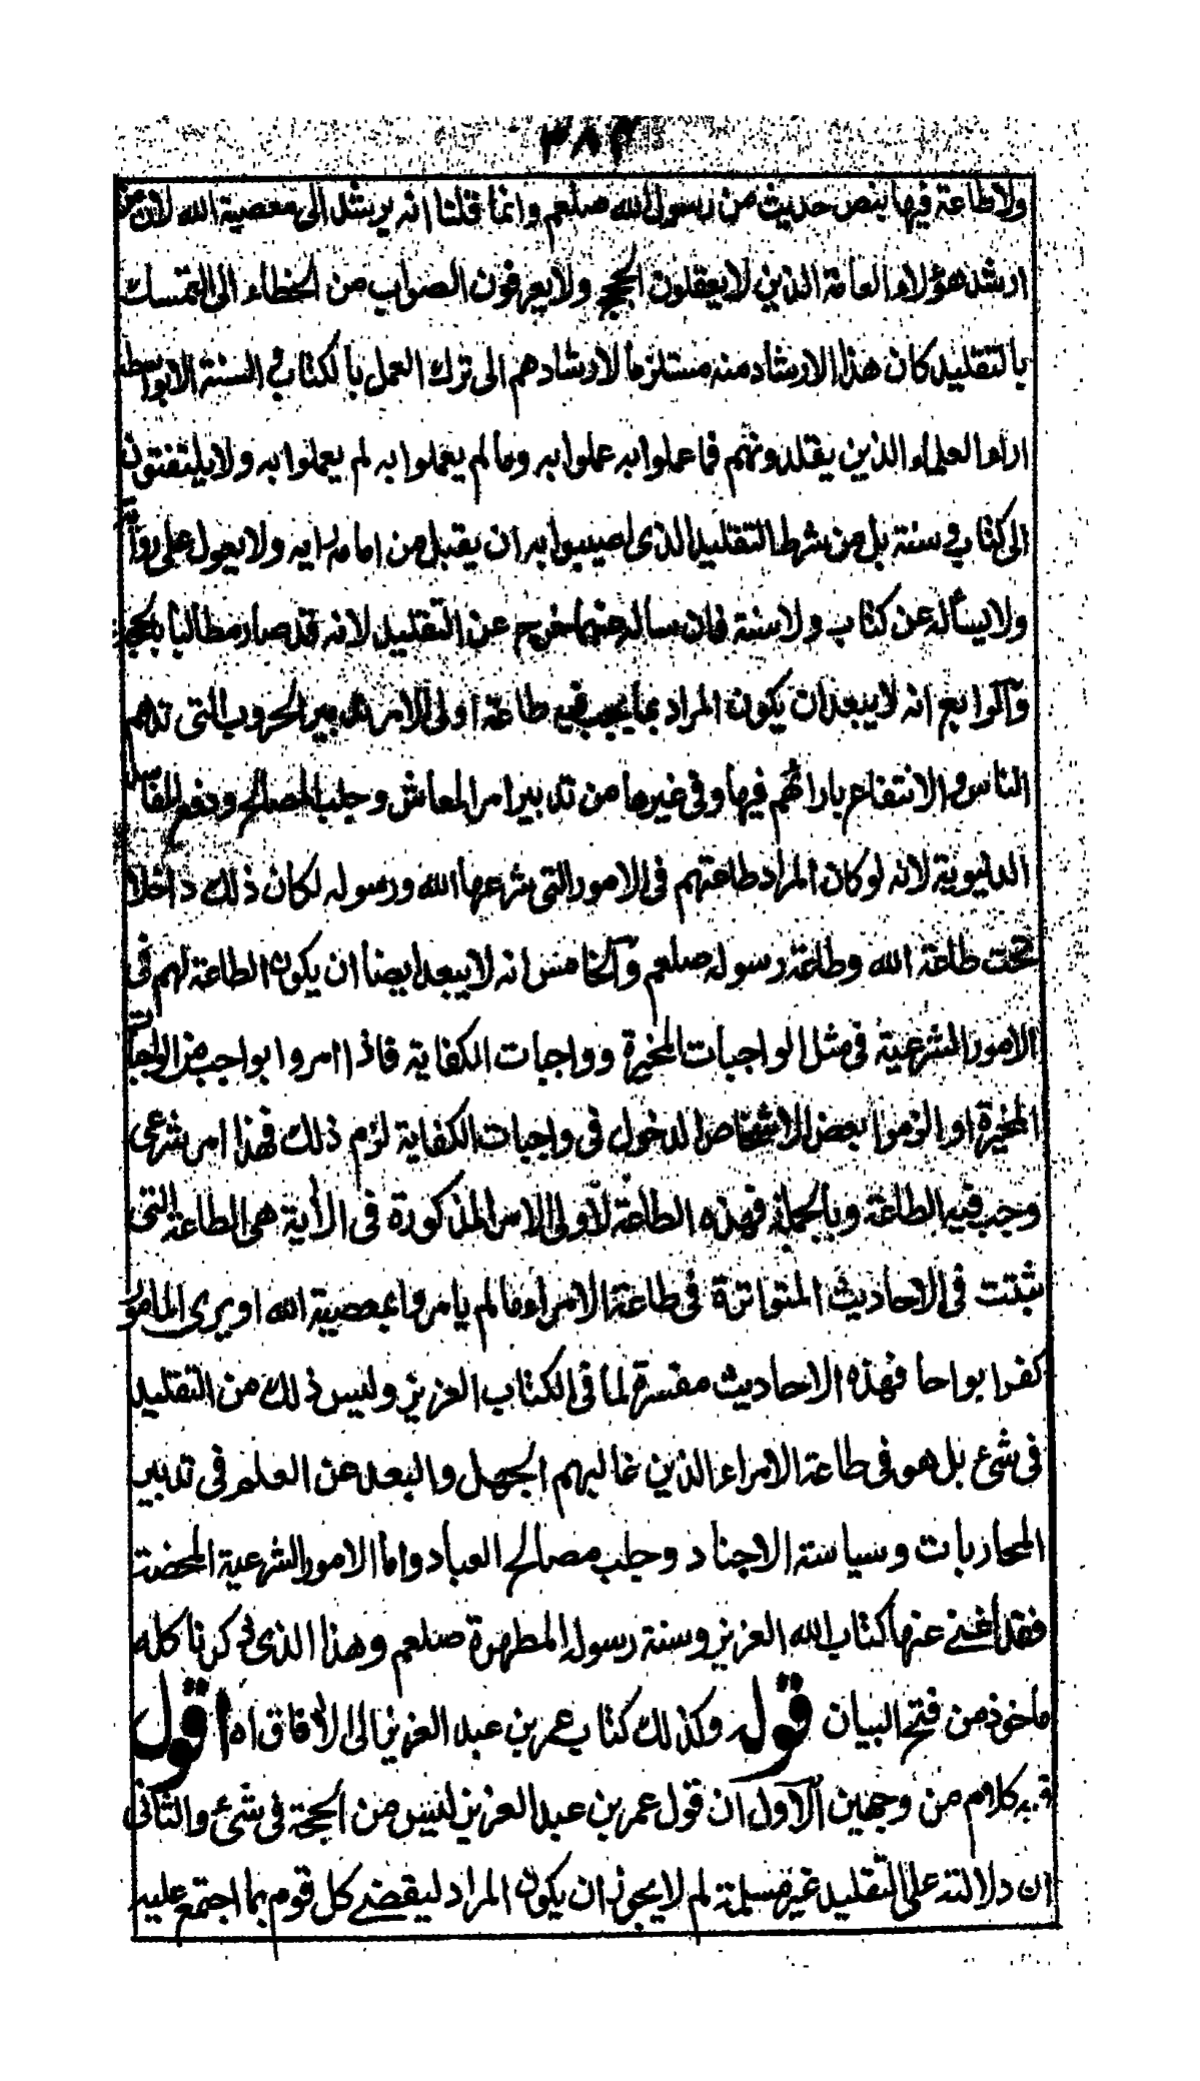 ٣٨٢
ولاطاعة فيها بنص حديث من رسول الله صلعم وانما قلنا انه يرشد الى معصية الله لان من
ارشد هؤلاء العامة الذين لا يعقلون الحجج ولا يعرفون الصواب من الخطاء الى التمسك
بالتقليد كان هذا الارشاد منه مستلزما لارشادهم الى ترك العمل بالكتاب والسنة الا بواسطة
اراء العلماء الذين يقلدونهم فما عملوا به عملوا به وما لم يعملوا به لم يعملوا به ولا يلتفتون
الى كتاب وسنة بل من شرط التقليد الذى اصيبوا به ان يقبل من امامه رايه ولا يعول على روايته
ولا يسأله عن كتاب ولا سنة فان ساله عنهما خرج عن التقليد لانه قد صار مطالبا بالحجة
والرابع انه لا يبعد ان يكون المراد بما يجب فيه طاعة اولى الامر تدبير الحروب التى تدهم
الناس والانتفاع بارائهم فيها وفى غيرها من تدبير امر المعاش وجلب المصالح ودفع المفاسد
الدنيوية لانه لو كان المراد طاعتهم فى الامور التى شرعها الله ورسوله لكان ذلك داخلا
تحت طاعة الله وطاعة رسوله صلعم والخامس انه لا يبعد ايضا ان يكون الطاعة لهم فى
الامور الشرعية فى مثل الواجبات المخيرة وواجبات الكفاية فاذا امروا بواجب من الواجبات
المخيرة او الزموا بعض الاشخاص الدخول فى واجبات الكفاية لزم ذلك فهذا امر شرعى
وجب فيه الطاعة وبالجملة فهذه الطاعة لاولى الامر المذكورة فى الأية هى الطاعة التى
ثبتت فى الاحاديث المتواترة فى طاعة الامراء ما لم يامروا بمعصية الله او يرى المامور
كفرا بواحا فهذه الاحاديث مفسرة لما فى الكتاب العزيز وليس ذلك من التقليد
فى شئ بل هو فى طاعة الامراء الذين غالبهم الجهل والبعد عن العلم فى تدبير
المحاربات وسياسة الاجناد وجلب مصالح العباد واما الامور الشرعية المحضة
فقد اغنى عنها كتاب الله العزيز وسنة رسوله المطهرة صلعم وهذا الذى ذكرنا كله
ماخوذ من فتح البيان قوله وكذلك كتاب عمر بن عبد العزيز الى الأفاق اه اقول
فيه كلام من وجهين الاول ان قول عمر بن عبد العزيز ليس من الحجة فى شئ والثانى
ان دلالته على التقليد غير مسلمة لم لا يجوز ان يكون المراد ليقضے كل قوم بما اجتمع عليه